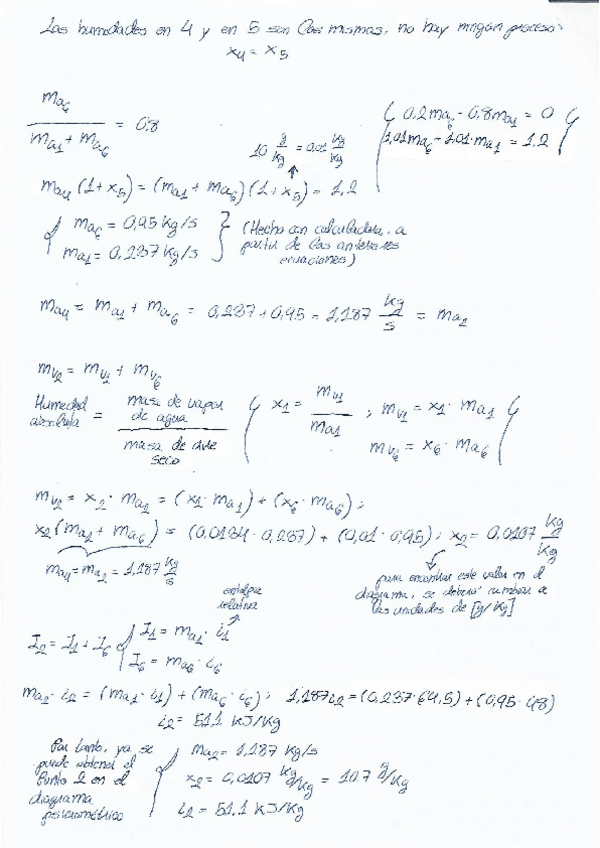 Las humedades en 4 y en 5 son las mismas, no hay ningún proceso.
x4 = x5
ma6 / (ma1 + ma6) = 0,8
{ 0,2ma6 - 0,8ma1 = 0
1,01ma6 - 1,01·ma1 = 1,2 }
10 g/Kg = 0,01 Kg/Kg
ma4 (1+x5) = (ma1 + ma6) (1+x5) = 1,2
{ ma6 = 0,95 Kg/s
ma1 = 0,237 Kg/s }
(Hecho con calculadora, a
partir de las anteriores
ecuaciones)
ma4 = ma1 + ma6 = 0,237 + 0,95 = 1,187 Kg/s = ma2
mv2 = mv1 + mv6
Humedad absoluta = masa de vapor de agua / masa de aire seco
{ x1 = mv1/ma1 ; mv1 = x1 · ma1
mv6 = x6 · ma6 }
mv2 = x2 · ma2 = (x1 · ma1) + (x6 · ma6) ;
x2 (ma1 + ma6) = (0,0134 · 0,237) + (0,01 · 0,95) ; x2 = 0,0107 Kg/Kg
ma4 = ma2 = 1,187 Kg/s
para encontrar este valor en el
diagrama, se deberá cambiar a
las unidades de [g/Kg]
entalpía
relativa
I2 = I1 + I6 { I1 = ma1 · i1
I6 = ma6 · i6
ma2 · i2 = (ma1 · i1) + (ma6 · i6) ; 1,187i2 = (0,237·64,5) + (0,95·48)
i2 = 51,1 KJ/Kg
Por tanto, ya se
puede obtener el
punto 2 en el
diagrama
psicrométrico
{ ma2 = 1,187 Kg/s
x2 = 0,0107 Kg/Kg = 10,7 g/Kg
i2 = 51,1 KJ/Kg